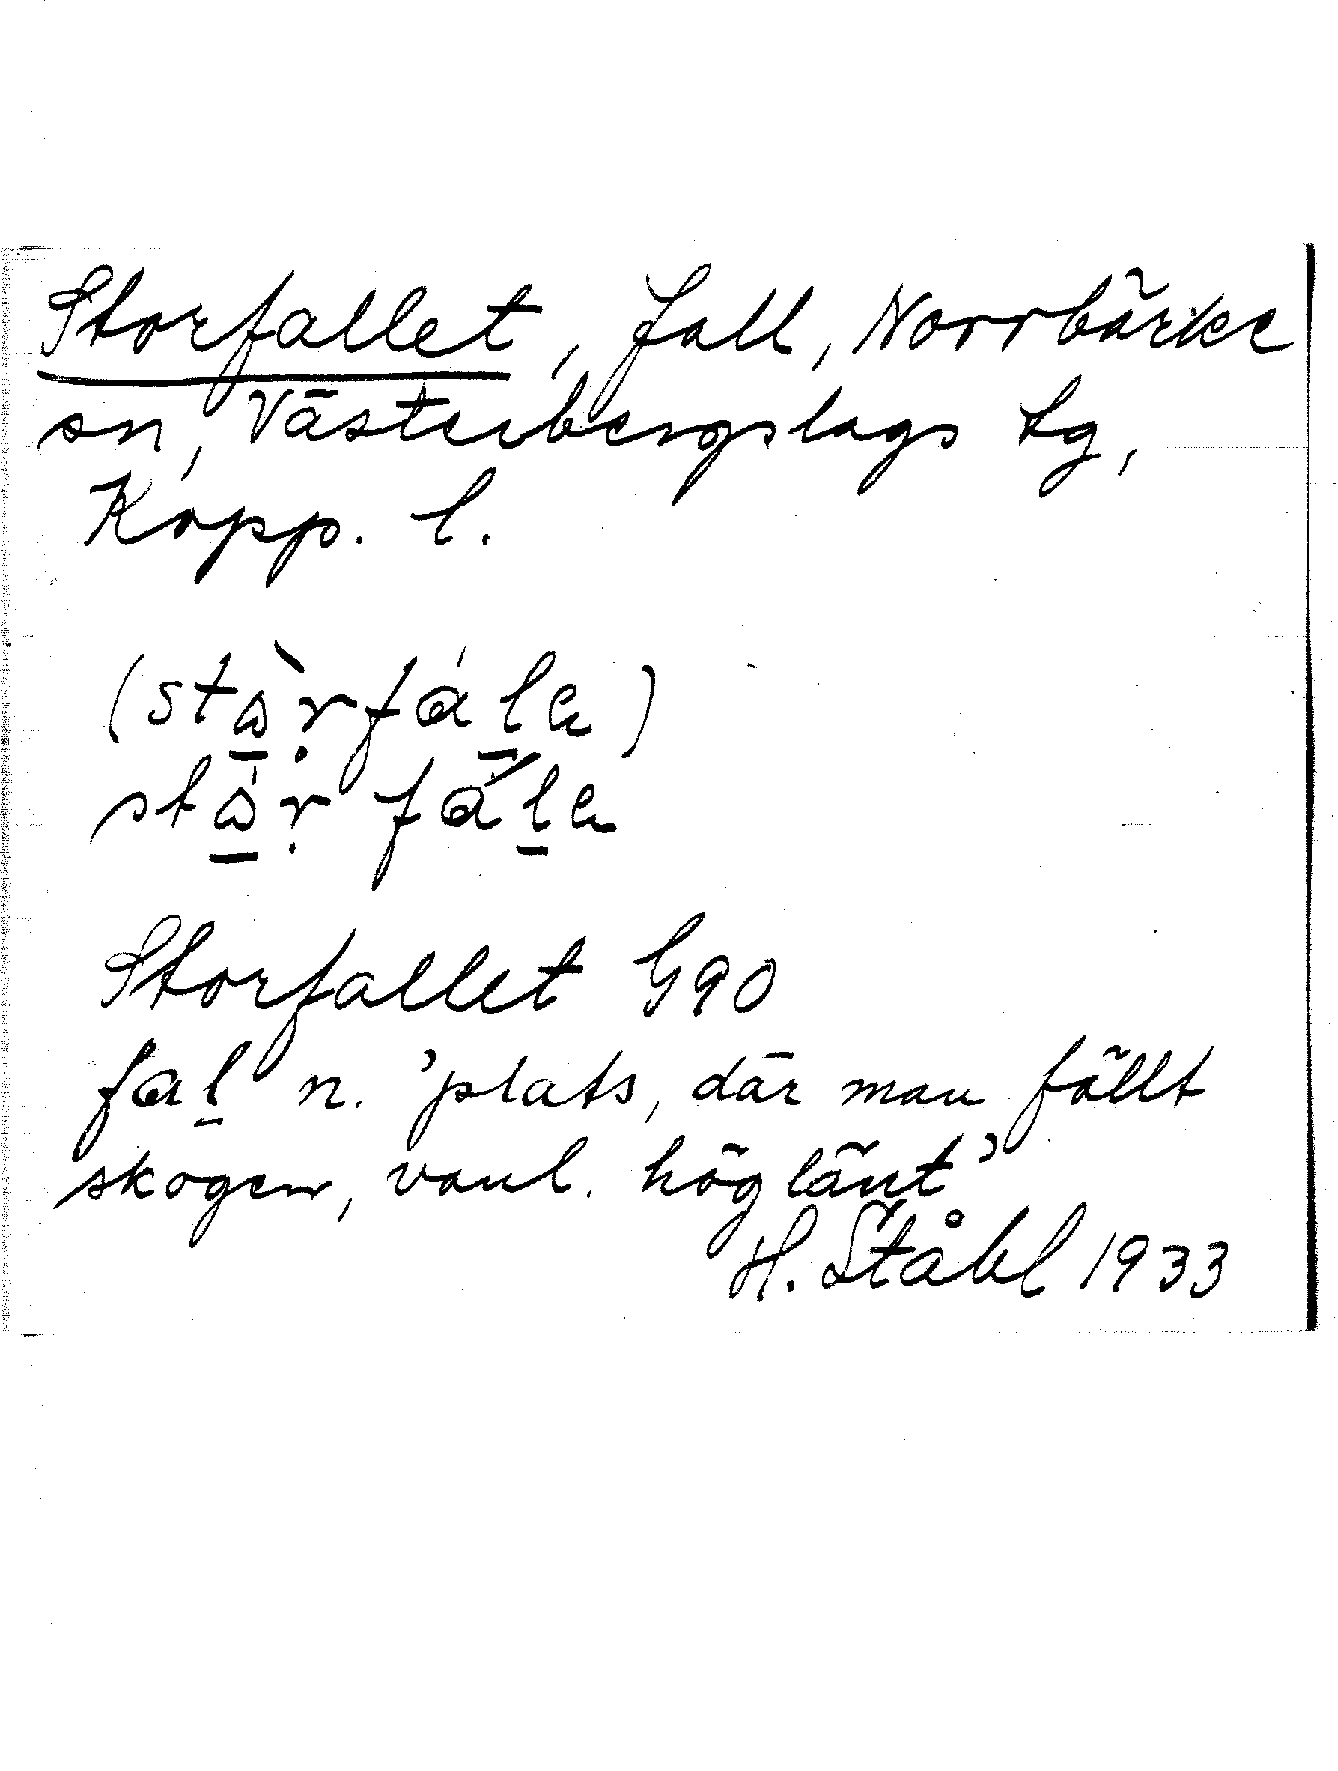 Storfallet, fall, Norrbärke
sn, Västerbergslags tg,
Kopp. l.
(stɷ̱̀ṛfáḻa)
stɷ̱̀ṛ fáḻa
Storfallet G90
faḻ n. 'plats, där man fällt
skogen, vanl. höglänt'
H. Ståhl 1933